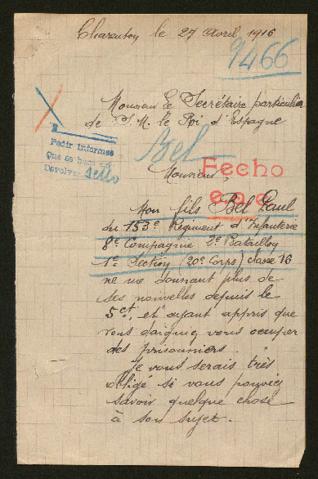 Charenton le 27 Avril 1916
9466
Monsieur le Secrétaire particulier
de S. M. le Roi d'Espagne
Bel
Pedir informes
Que se
Devolver
Monsieur
Fecho
Mon fils Bel Paul
du 153e Régiment d'Infanterie
8e Compagnie 2e Bataillon
1e Section (20e Corps) classe 16
ne me donnant plus de
ses nouvelles depuis le
5 ct, et ayant appris que
vous daignez vous occuper
des prisonniers.
Je vous serais très
obligé si vous pouviez
savoir quelque chose
à son sujet.